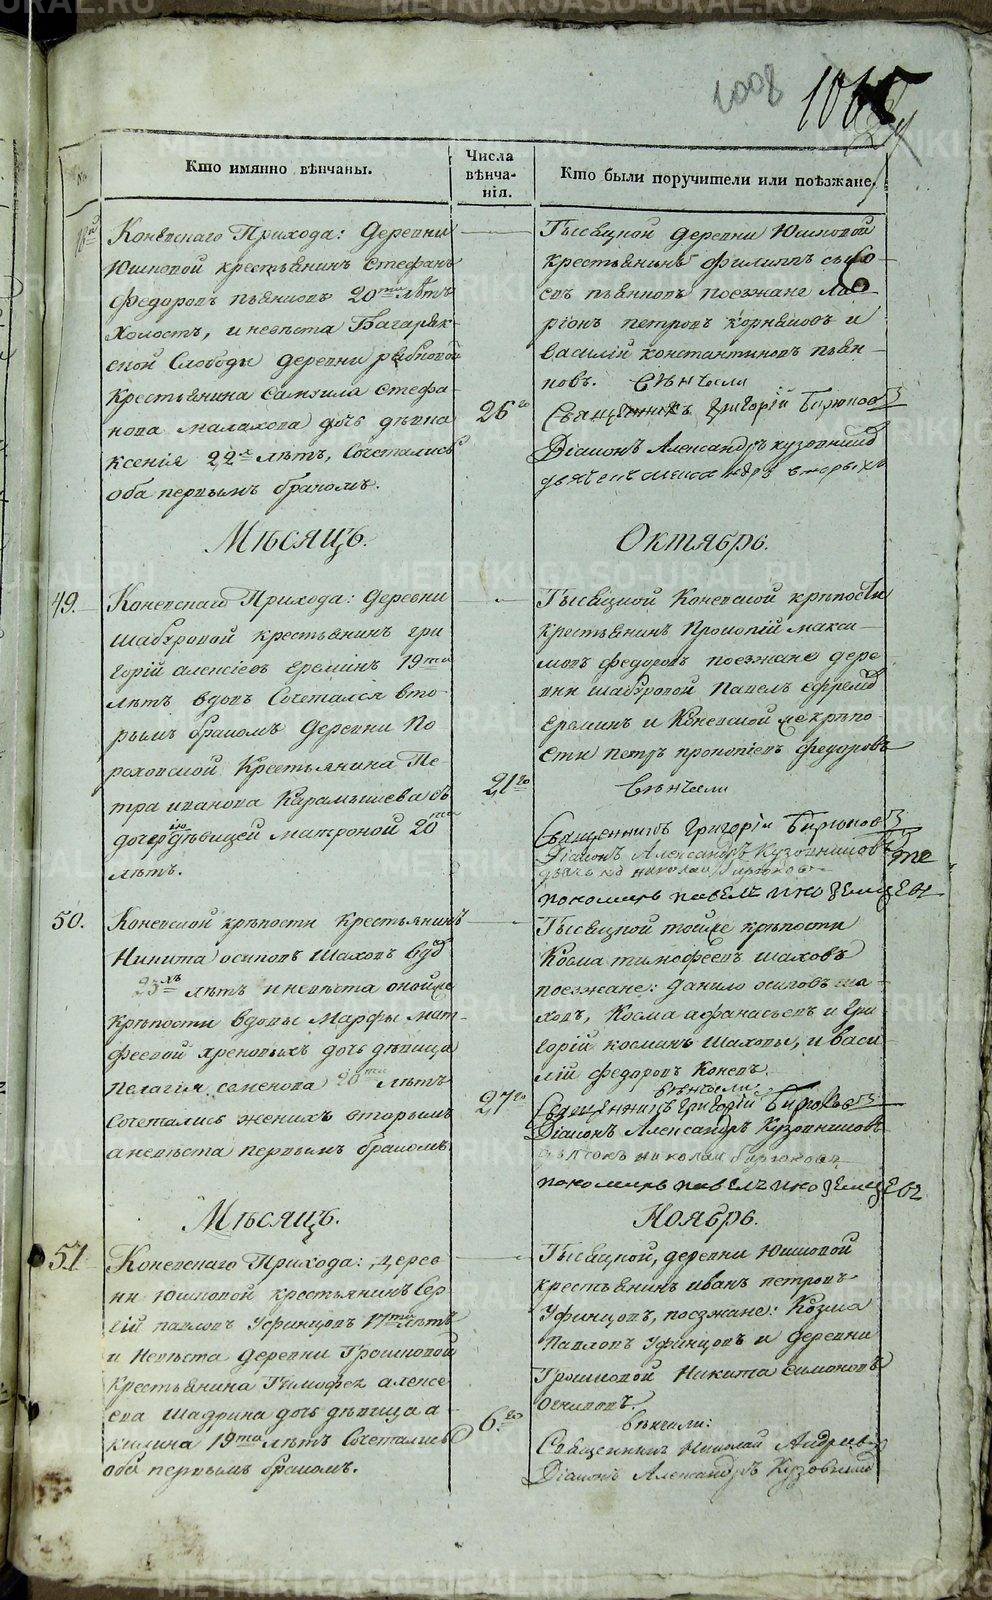 1008
1065
№
Кто имянно вѣнчаны.
Числа вѣнча-
нія.
Кто были поручители или поѣзжане.
Коневскаго Прихода: Деревни
Юшковой крестьянинъ Стефанъ
Федоровъ пьянковъ 20ти лѣтъ
Холостъ, и невѣста Багаряк-
ской Слободы деревни рыбновой
Крестьянина Самоила Стефа-
нова малахова дочь дѣвка
Ксенія 22хъ лѣтъ, Сочетались
оба первымъ бракомъ.
26го
Тысяцкой деревни Юшковой
крестьянинъ Филиппъ
евъ пьянковъ поезжане Ла-
ріонъ петровъ корняковъ и
василій константиновъ пьян-
ковъ. Вѣнчали
Священникъ Григорій Бирюковъ
Діаконъ Александръ Кузовников
дьячекъ александръ
Мѣсяцъ.
Октябрь.
49.
Коневскаго Прихода: Деревни
Шабуровой крестьянин гри
горій алексіевъ Ереминъ 19ти
лѣтъ вдовъ Сочетался вто-
рымъ бракомъ деревни По
роховской Крестьянина Пе-
тра иванова Карамышева съ
дочерью дѣвицей матроной 20ти
лѣтъ.
21го
Тысяцкой Коневской крѣпости
крестьянинъ Прокопій макси-
мовъ федоровъ поезжане дере
вни шабуровой Павелъ ефремов
Ереминъ и Коневской же крѣпо-
сти петръ прокопіевъ федоровъ
Вѣнчали
Священникъ Григорій Бирюковъ
Діаконъ Александръ Кузовниковъ
дьячекъ николай бирюковъ
пономарь павелъ иноземцевъ
50.
Коневской крѣпости Крестьянинъ
Никита осиповъ Шаховъ вдов
23хъ лѣтъ и невѣста оной же
крѣпости вдовы Марфы мат-
феевой хреновыхъ дочь дѣвица
пелагія семенова 20ти лѣтъ
сочетались женихъ вторымъ
а невѣста первымъ бракомъ.
27го
Тысяцкой тойже крѣпости
Косма тимофеевъ шаховъ
поезжане: данило осиповъ ша-
ховъ, Косма афанасьевъ и Гри
горій косминъ Шаховы, и Васи
лій федоровъ Коневъ.
вѣнчали
Священникъ Григорій Бирюковъ
Діаконъ Александръ Кузовниковъ
дьячокъ николай бирюковъ
пономарь павелъ иноземцевъ
Мѣсяцъ.
Ноябрь.
51
Коневскаго Прихода: дерев
ни Юшковой крестьянинъ Сер
гій павловъ Уфинцовъ 17ти лѣтъ
и Невѣста деревни Грошковой
Крестьянина Тимофея алексе
ева Шадрина дочь дѣвица а-
килина 19ти лѣтъ Сочетались
оба первымъ бракомъ.
6го
Тысяцкой, деревни Юшковой
крестьянинъ иванъ петровъ
Уфинцовъ, поезжане: Козма
Павловъ Уфинцовъ и деревни
Грошковой Никита симоновъ
вѣнчали:
Священникъ Николай Андріев
Діаконъ Александръ Кузовников